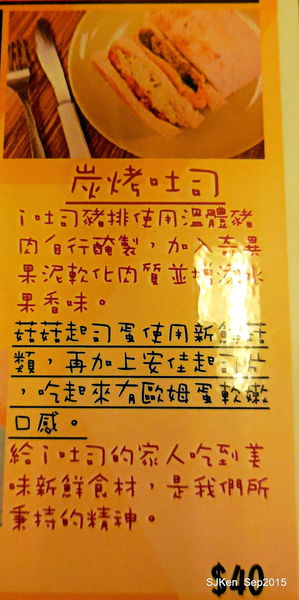 炭烤吐司
i吐司豬排使用溫體豬
肉自行醃製，加入奇異
果泥軟化肉質並增添水
果香味。
菇菇起司蛋使用新鮮菇
類，再加上安佳起司片
，吃起來有歐姆蛋軟嫩
口感。
給i吐司的家人吃到美
味新鮮食材，是我們所
秉持的精神。
$40
SJKen Sep2015